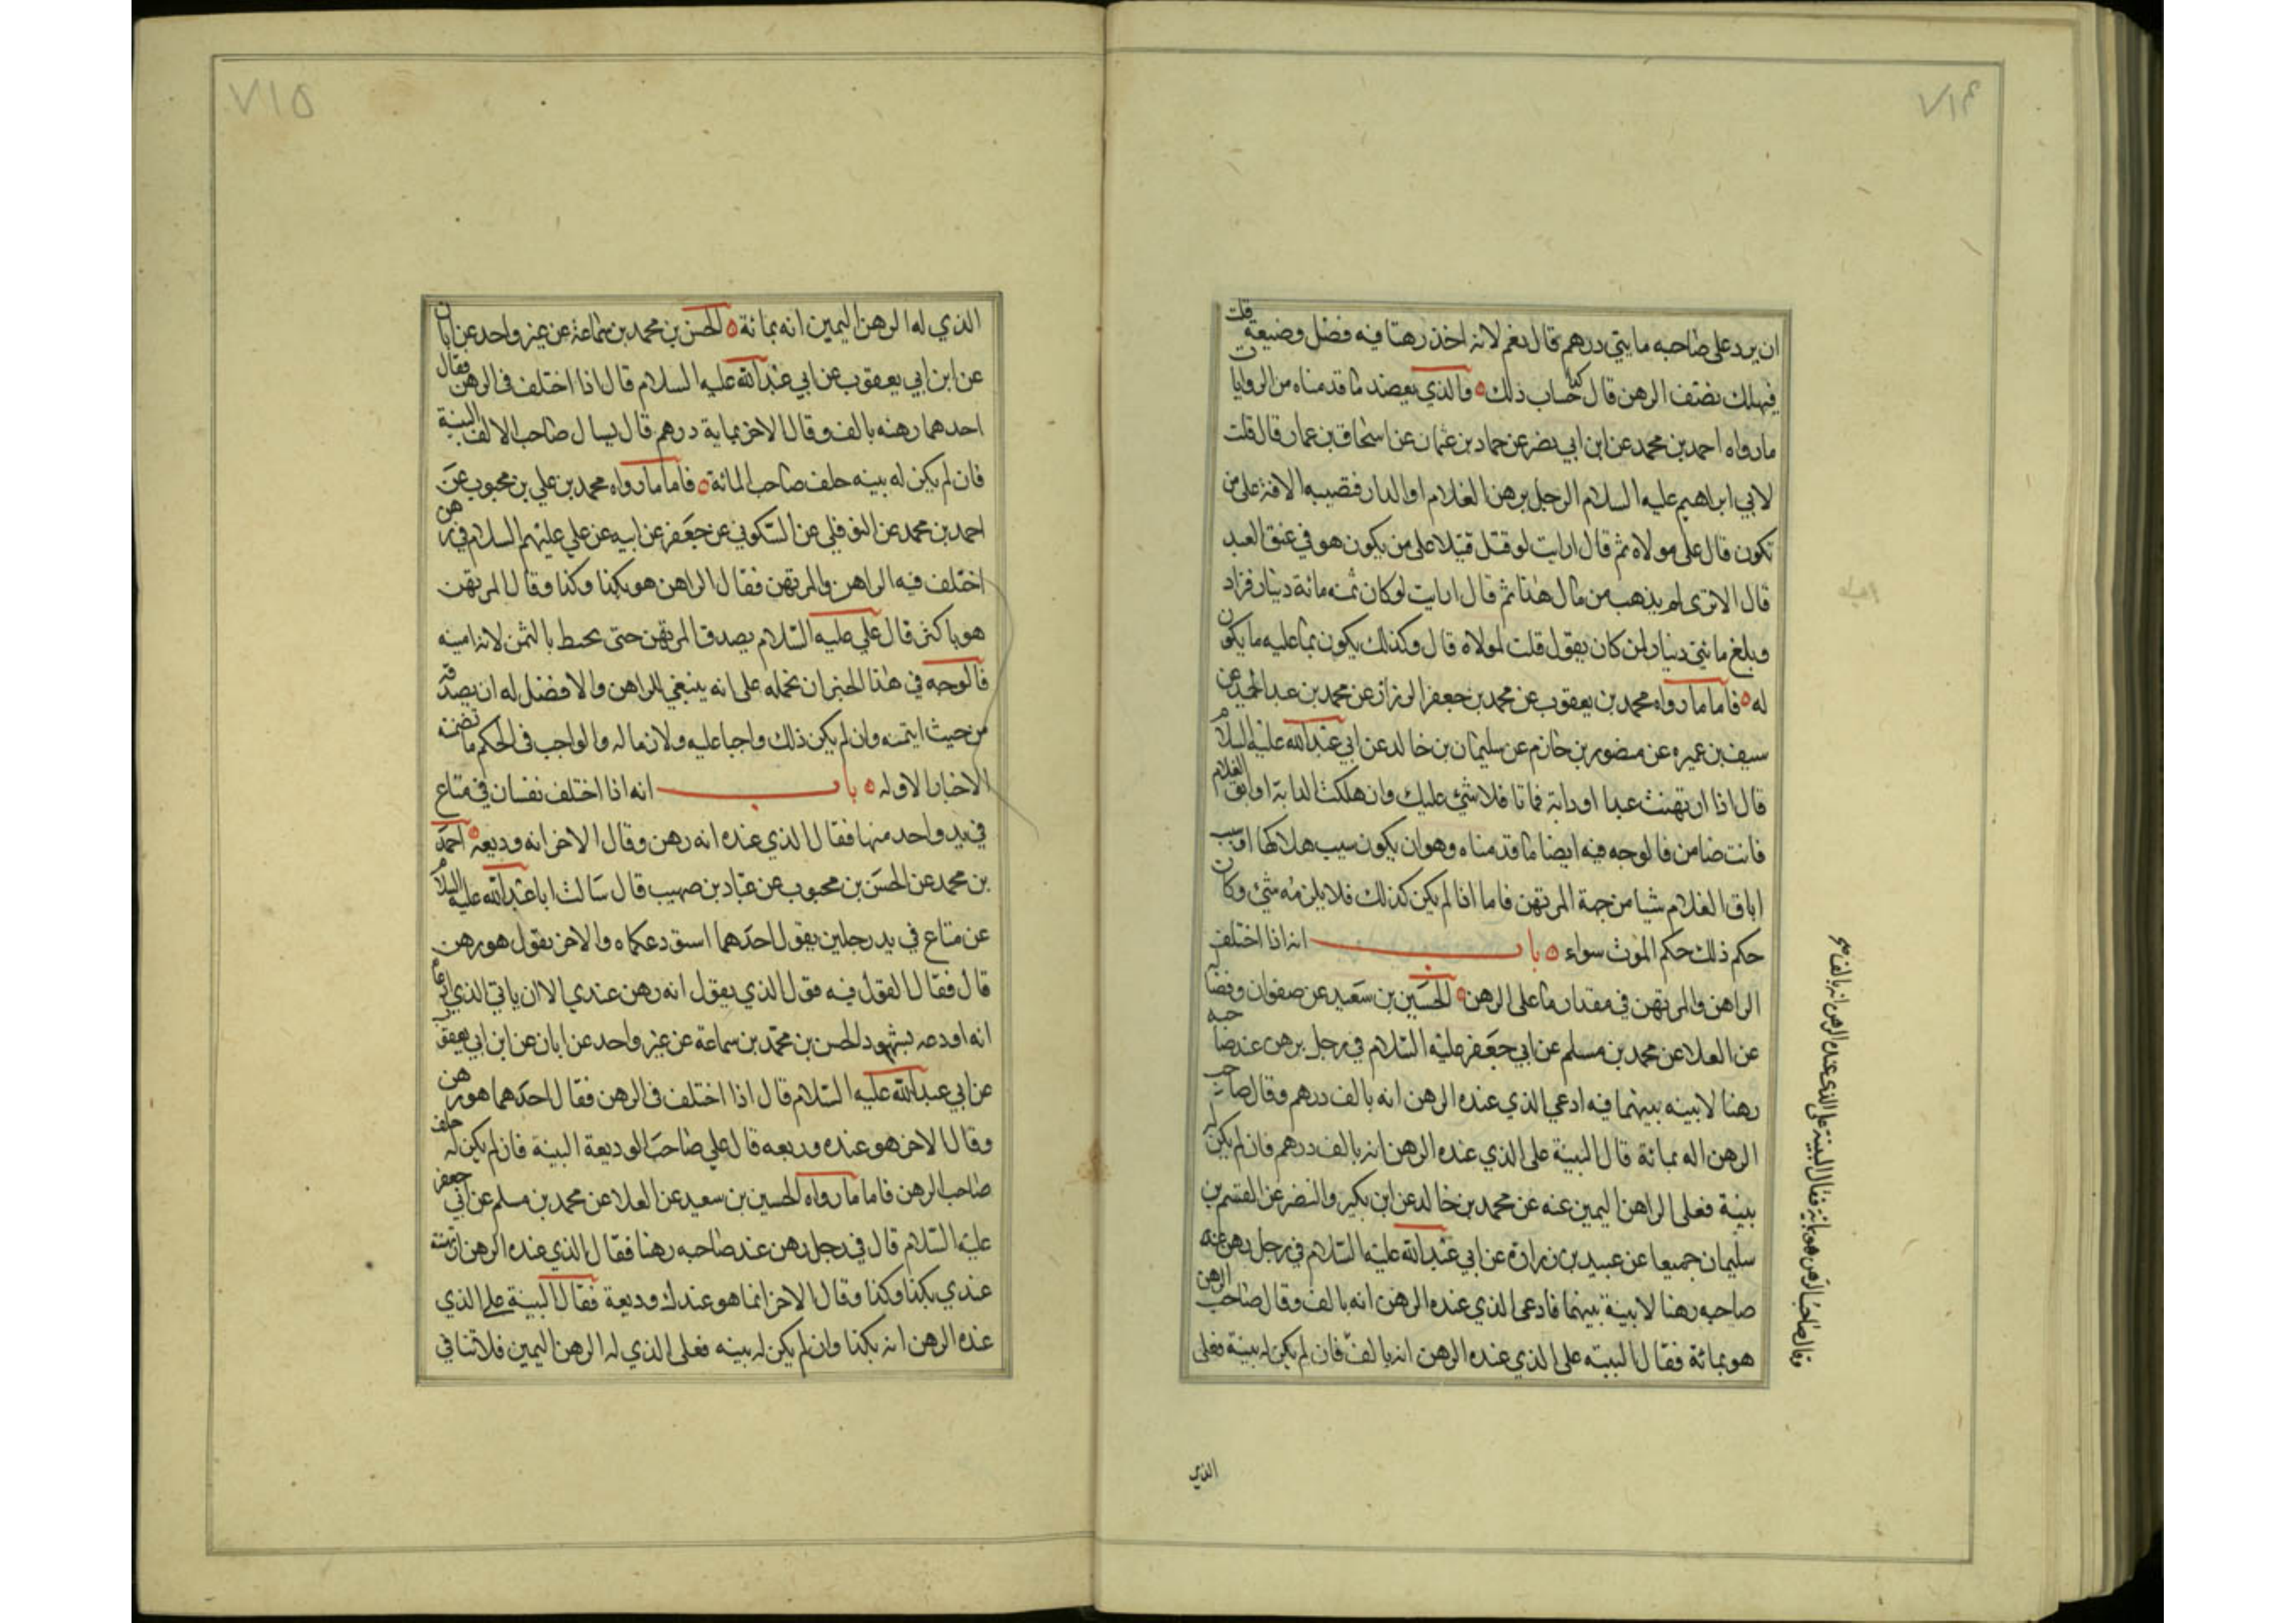 ٧١٤
ان يرد على صاحبه مايتي درهم قال نعم لانه اخذ رهنا فيه فضل وضيعه قلت
فهلك نصف الرهن قال حساب ذلك والذي يعضد ما قدمناه من الروايات
مارواه احمد بن محمد عن ابن ابي نصر عن حماد بن عثمان عن اسحاق بن عمار قال قلت
لابي ابراهيم عليه السلام الرجل يرهن الغلام او الدار فتصيبه الافة على من
تكون قال على مولاه ثم قال ارايت لو قتل قتيلا على من يكون هو في عنق العبد
قال الا ترى لم يذهب من مال هذا ثم قال ارايت لو كان ثمنه مائة دينار فزاد
وبلغ مائتي دينار لمن كان يقول قلت لمولاه قال وكذلك يكون بما عليه ما يكون
له فاما مارواه محمد بن يعقوب عن محمد بن جعفر الرزاز عن محمد بن عبد الحميد عن
سيف بن عميره عن منصور بن حازم عن سليمان بن خالد عن ابي عبد الله عليه السلام
قال اذا ارتهنت عبدا او دابة فماتا فلا شئ عليك وان هلكت الدابة او ابق الغلام
فانت ضامن فالوجه فيه ايضا ما قدمناه وهو ان يكون سبب هلاكها او سبب
اباق الغلام شيا من جهة المرتهن فاما اذا لم يكن كذلك فلا يلزمه شئ وكان
حكم ذلك حكم الموت سواء باب انه اذا اختلف
الراهن والمرتهن في مقدار ما على الرهن الحسين بن سعيد عن صفوان وفضاله
عن العلا عن محمد بن مسلم عن ابي جعفر عليه السلام في رجل يرهن عند صاحبه
رهنا لا بينه بينهما فيه ادعي الذي عنده الرهن انه بالف درهم وقال صاحب
الرهن اله بمائة قال البينة على الذي عنده الرهن انه بالف درهم فان لم يكن له
بينة فعلى الراهن اليمين عنه عن محمد بن خالد عن ابن بكير والنضر عن القسم بن
سليمان جميعا عن عبيد بن زرارة عن ابي عبد الله عليه السلام في رجل رهن عند
صاحبه رهنا لا بينة بينهما فادعى الذي عنده الرهن انه بالف وقال صاحب الرهن
هو بمائة فقال البينه على الذي عنده الرهن انه بالف فان لم يكن له بينة فعلى
وقال صاحب الرهن هو بماية فقال البينة على الذي عنده الرهن انه بالف
الذي
٧١٥
الذي له الرهن اليمين انه بمائة الحسن بن محمد بن سماعة عن غير واحد عن ابان
عن ابن ابي يعفوب عن ابي عبد الله عليه السلام قال اذا اختلف في الرهن فقال
احدهما رهنه بالف وقال الاخر بماية درهم قال يسال صاحب الالف البينة
فان لم يكن له بينه حلف صاحب المائة فاما مارواه محمد بن علي بن محبوب عن
احمد بن محمد عن النوفلي عن السكوني عن جعفر عن ابيه عن علي عليهم السلام في رهن
اختلف فيه الراهن والمرتهن فقال الراهن هو بكذا وكذا وقال المرتهن
هو باكثر قال علي عليه السلام يصدق المرتهن حتى يحيط بالثمن لانه امينه
فالوجه في هذا الخبر ان نحمله على انه ينبغي للراهن والافضل له ان يصدقه
من حيث ايتمنه وان لم يكن ذلك واجبا عليه ولازما له والواجب في الحكم ما تضمنه
الاخبار الاوله باب انه اذا اختلف نفسان في متاع
في يد واحد منهما فقال الذي عنده انه رهن وقال الاخر انه وديعه احمد
بن محمد عن الحسن بن محبوب عن عباد بن صهيب قال سالت ابا عبد الله عليه السلام
عن متاع في يد رجلين يقول احدهما استودعكاه والاخر يقول هو رهن
قال فقال القول فيه قول الذي يقول انه رهن عندي الا ان ياتي الذي ادعا
انه اودعه بشهود الحسن بن محمد بن سماعة عن غير واحد عن ابان عن ابن ابي يعفوب
عن ابي عبد الله عليه السلام قال اذا اختلف في الرهن فقال احدهما هو رهن
وقال الاخر هو عنده وديعه قال على صاحب الوديعة البينة فان لم يكن له حلف
صاحب الرهن فاما مارواه الحسين بن سعيد عن العلا عن محمد بن مسلم عن ابي جعفر
عليه السلام قال في رجل رهن عند صاحبه رهنا فقال الذي عنده الرهن ارتهنته
عندي بكذا وكذا وقال الاخر انما هو عندك وديعة فقال البينة على الذي
عنده الرهن انه بكذا وان لم يكن له بينه فعلى الذي له الرهن اليمين فلا تنافي